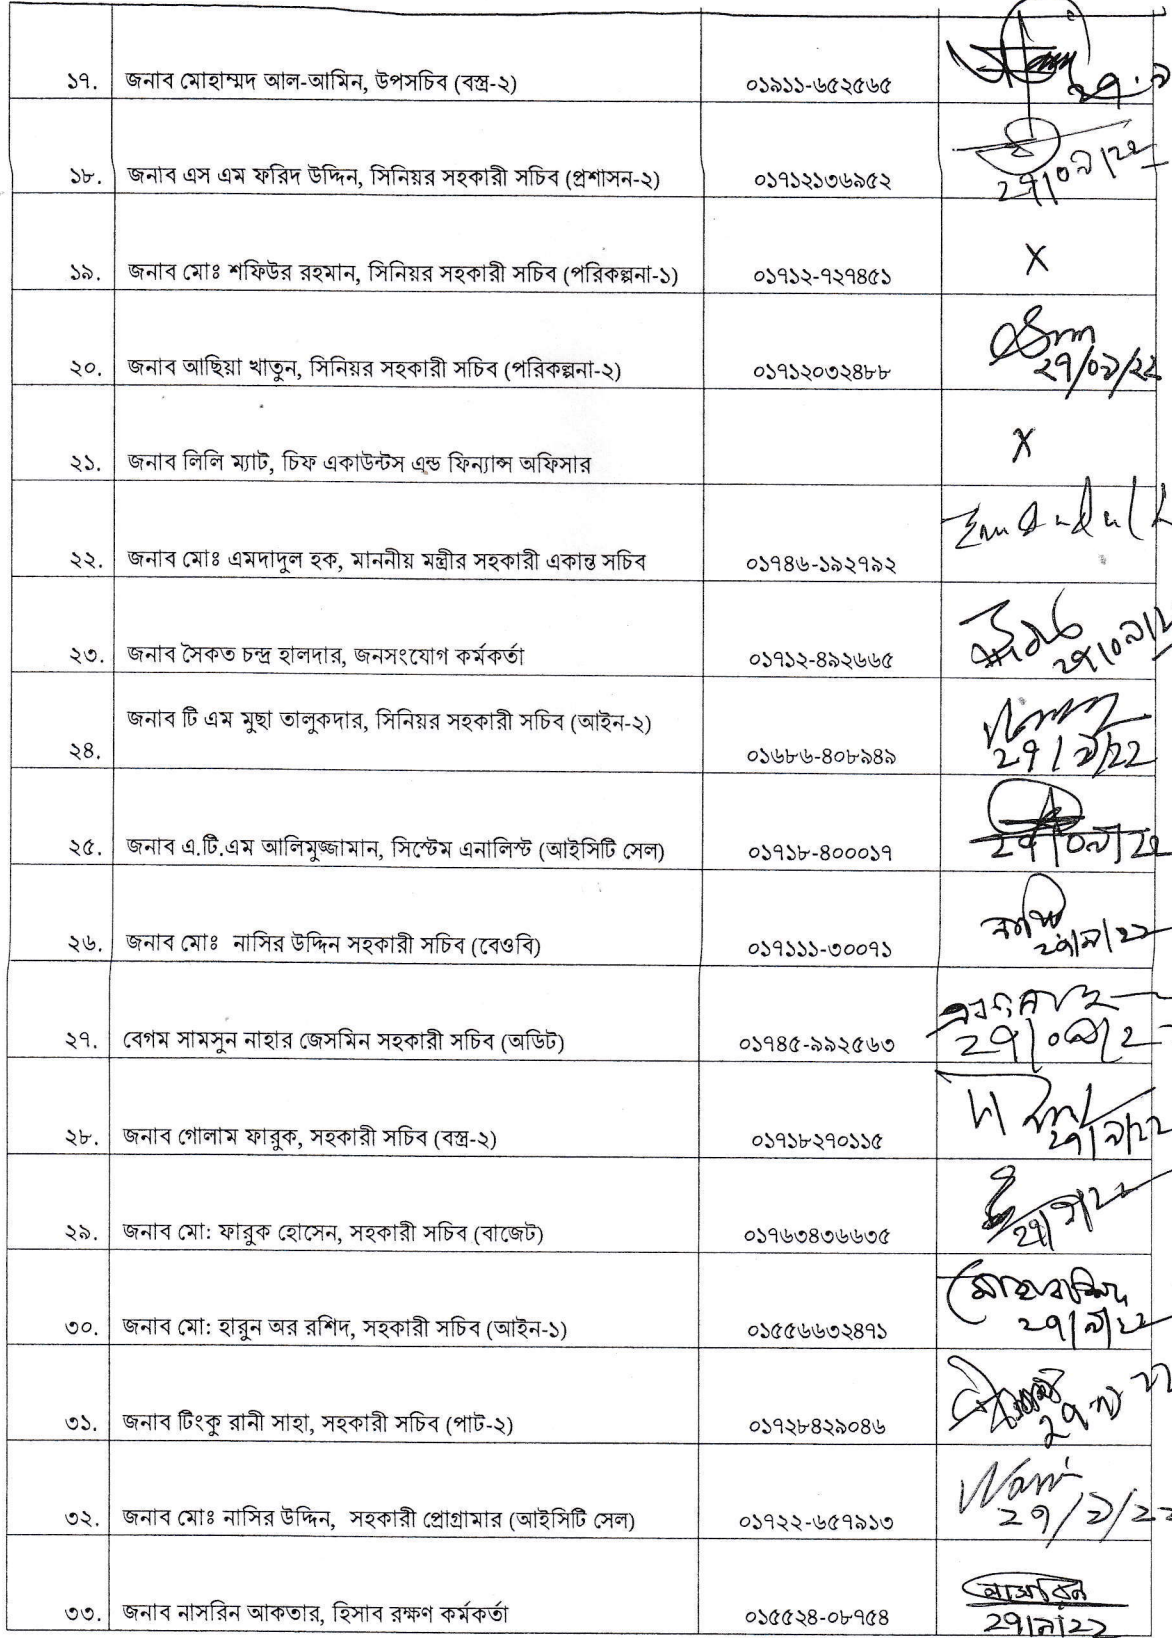 ১৭. জনাব মোহাম্মদ আল-আমিন, উপসচিব (বস্ত্র-২) ০১৯১১-৬৫২৫৬৫
১৮. জনাব এস এম ফরিদ উদ্দিন, সিনিয়র সহকারী সচিব (প্রশাসন-২) ০১৭১২১৩৬৯৫২ ২৭/০৯/২২
১৯. জনাব মোঃ শফিউর রহমান, সিনিয়র সহকারী সচিব (পরিকল্পনা-১) ০১৭১২-৭২৭৪৫১ X
২০. জনাব আছিয়া খাতুন, সিনিয়র সহকারী সচিব (পরিকল্পনা-২) ০১৭১২০৩২৪৮৮ ২৭/০৯/২২
২১. জনাব লিলি ম্যাট, চিফ একাউন্টস এন্ড ফিন্যান্স অফিসার X
২২. জনাব মোঃ এমদাদুল হক, মাননীয় মন্ত্রীর সহকারী একান্ত সচিব ০১৭৪৬-১৯২৭৯২
২৩. জনাব সৈকত চন্দ্র হালদার, জনসংযোগ কর্মকর্তা ০১৭১২-৪৯২৬৬৫
জনাব টি এম মুছা তালুকদার, সিনিয়র সহকারী সচিব (আইন-২)
২৪. ০১৬৮৬-৪০৮৯৪৯ ২৭/৯/২২
২৫. জনাব এ.টি.এম আলিমুজ্জামান, সিস্টেম এনালিস্ট (আইসিটি সেল) ০১৭১৮-৪০০০১৭ ২৭/০৯/২২
২৬. জনাব মোঃ নাসির উদ্দিন সহকারী সচিব (বেওবি) ০১৭১১১-৩০০৭১ ২৭/৯/২২
২৭. বেগম সামসুন নাহার জেসমিন সহকারী সচিব (অডিট) ০১৭৪৫-৯৯২৫৬৩
২৮. জনাব গোলাম ফারুক, সহকারী সচিব (বস্ত্র-২) ০১৭১৮২৭০১১৫ ২৭/৯/২২
২৯. জনাব মো: ফারুক হোসেন, সহকারী সচিব (বাজেট) ০১৭৬৩৪৩৬৬৩৫ ২৭/৯/২২
৩০. জনাব মো: হারুন অর রশিদ, সহকারী সচিব (আইন-১) ০১৫৫৬৬৩২৪৭১ ২৭/৯/২২
৩১. জনাব টিংকু রানী সাহা, সহকারী সচিব (পাট-২) ০১৭২৮৪২৯০৪৬
৩২. জনাব মোঃ নাসির উদ্দিন, সহকারী প্রোগ্রামার (আইসিটি সেল) ০১৭২২-৬৫৭৯১৩ ২৭/৯/২২
৩৩. জনাব নাসরিন আকতার, হিসাব রক্ষণ কর্মকর্তা ০১৫৫২৪-০৮৭৫৪ নাসরিন
২৭/৯/২২